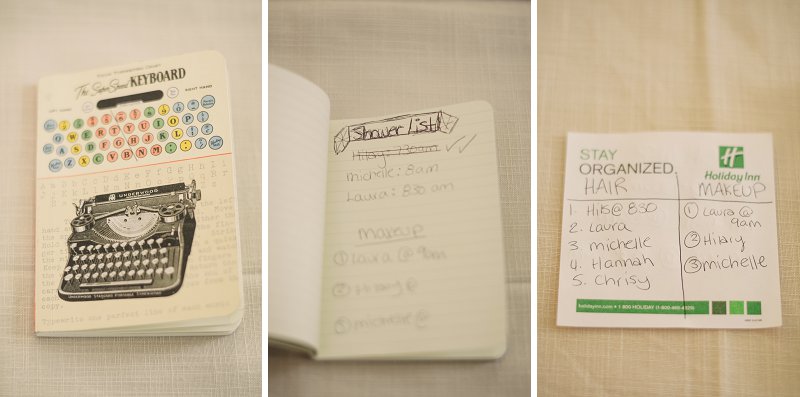 The Super Speed KEYBOARD
RIGHT HAND
Q W E R T Y U I O P
A S D F G H J K L
Z X C V B N M
UNDERWOOD
UNDERWOOD STANDARD PORTABLE TYPEWRITER
Typewrite one perfect line of each
Shower List!
Hilary: 730am
michelle: 8am
Laura: 830 am
makeup
1 Laura @ 9am
2 Hilary @
3 michelle @
STAY
ORGANIZED.
Holiday Inn
HAIR
MAKEUP
1. Hils @ 830
2. Laura
3 michelle
4. Hannah
5. Chrisy
1 Laura @
9am
2 Hilary
3 michelle
holidayinn.com • 1 800 HOLIDAY (1-800-465-4329)